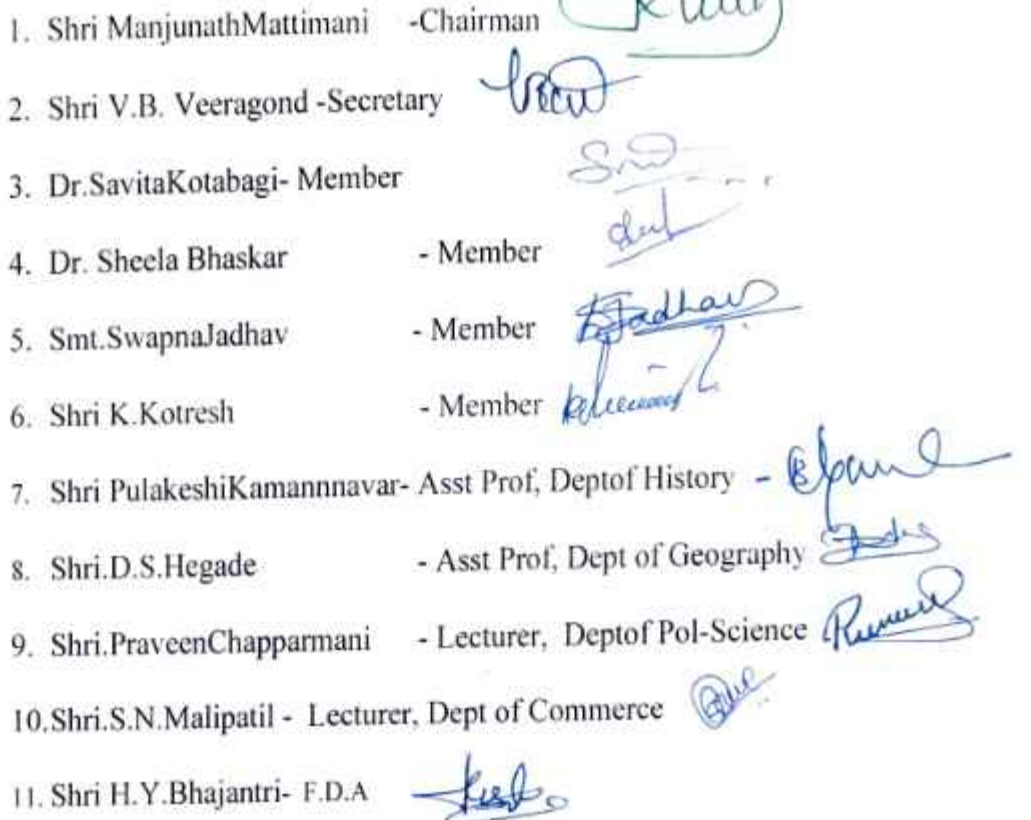 1. Shri ManjunathMattimani -Chairman
2. Shri V.B. Veeragond -Secretary
3. Dr.SavitaKotabagi- Member
4. Dr. Sheela Bhaskar - Member
5. Smt.SwapnaJadhav - Member Jadhav
6. Shri K.Kotresh - Member
7. Shri PulakeshiKamannnavar- Asst Prof, Deptof History -
8. Shri.D.S.Hegade - Asst Prof, Dept of Geography
9. Shri.PraveenChapparmani - Lecturer, Deptof Pol-Science
10.Shri.S.N.Malipatil - Lecturer, Dept of Commerce
11. Shri H.Y.Bhajantri- F.D.A